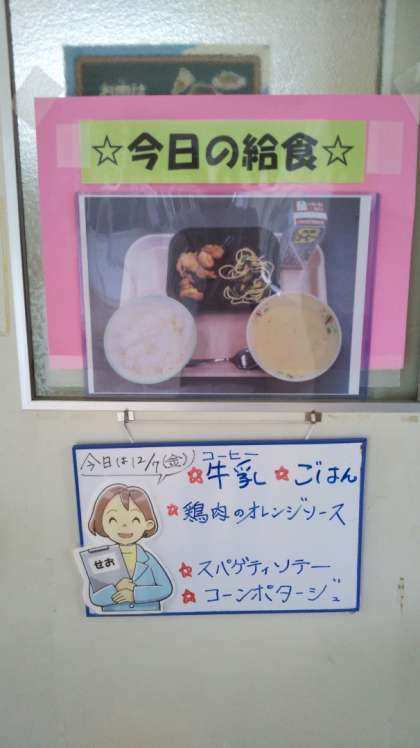 ☆今日の給食☆
今日は12/7(金)
コーヒー
牛乳 ごはん
鶏肉のオレンジソース
スパゲティソテー
コーンポタージュ
せお